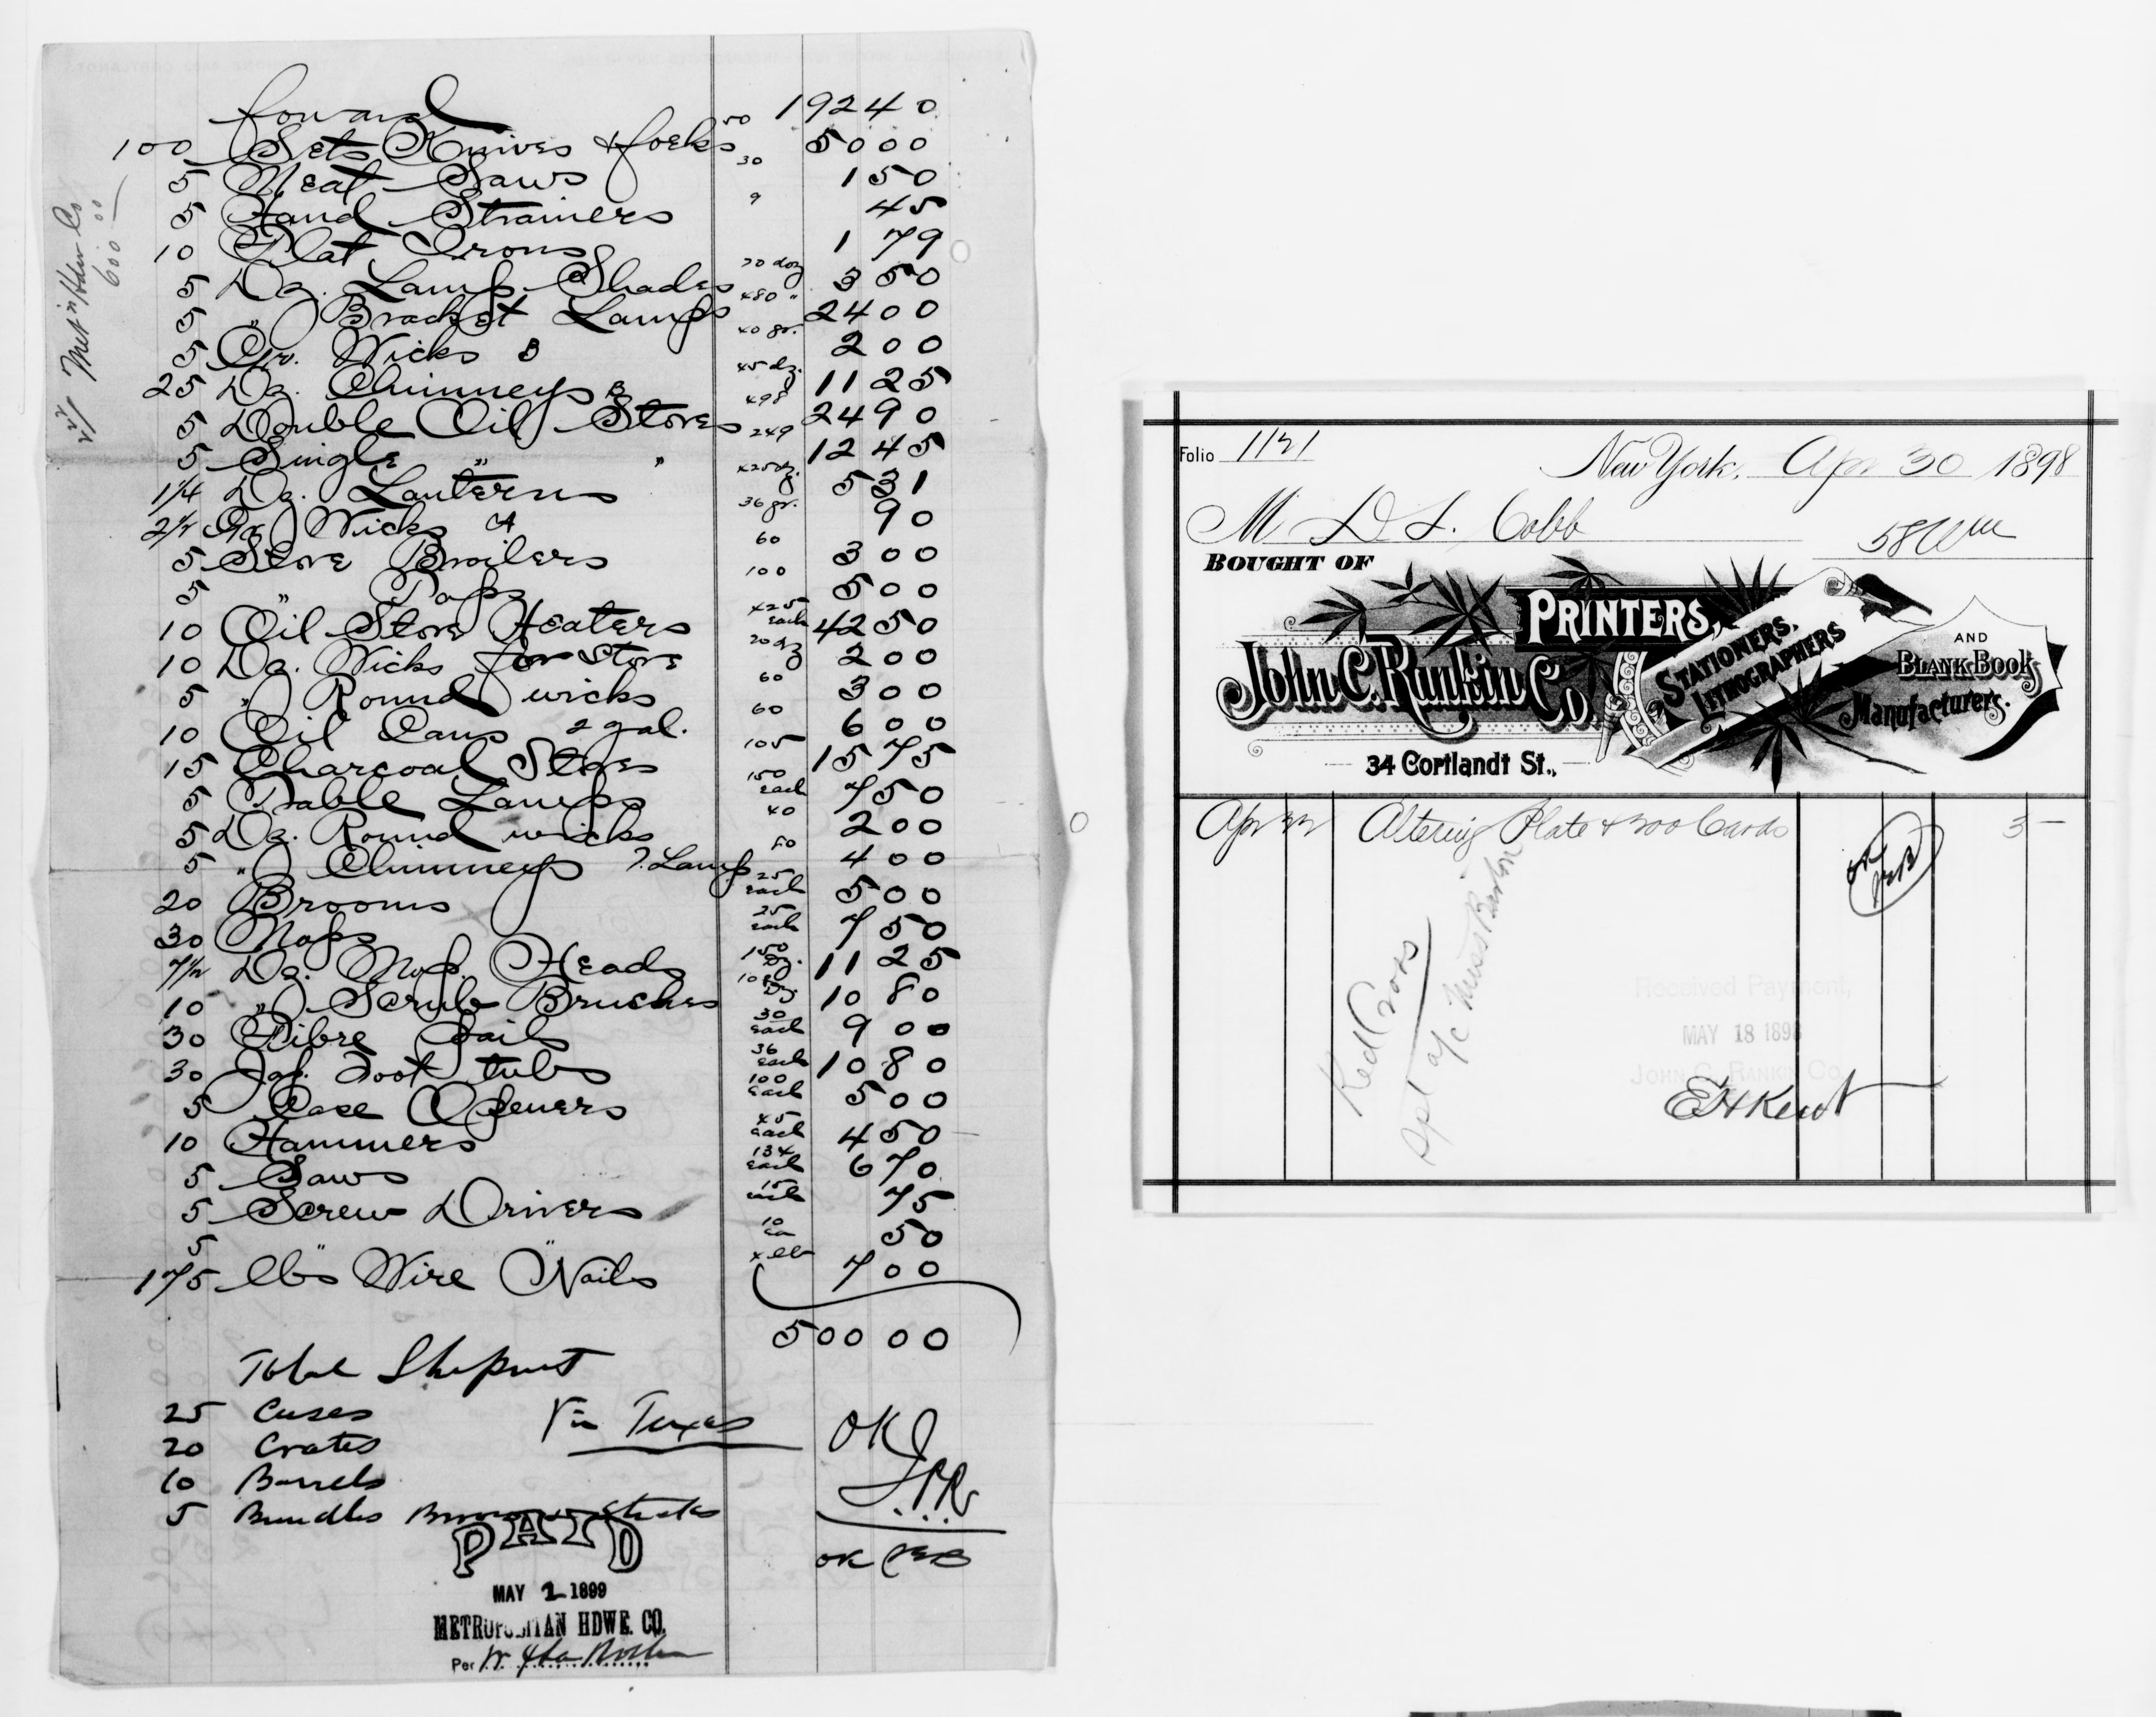 Forward 192 40
100 Sets Knives & forks 50 50 00
5 Meat Saws 30 1 50
5 Hand Strainers 9 45
10 Flat Irons 1 79
5 Dz. Lamp Shades 70 doz 3 50
5 " Bracket Lamps 480 " 24 00
5 Gr. Wicks B 40 gr. 2 00
25 Dz. Chimneys B 45 dz. 11 25
5 Double Oil Stoves 498 24 90
5 Single " " 249 12 45
1 1/4 Dz. Lanterns 425 dz. 5 31
2 1/2 Gr. Wicks A 36 gr. 90
5 Stove Broilers 60 3 00
5 " 100 5 00
10 Oil Stove Heaters 425 each 42 50
10 Dz. Wicks for Stove 20 dz 2 00
5 " Round wicks 60 3 00
10 Oil Cans 2 gal. 60 6 00
15 Charcoal Stoves 105 15 75
5 Table Lamps 150 each 7 50
5 Dz. Round wicks 40 2 00
5 " Chimneys T. Lamp 80 4 00
20 Brooms 25 each 5 00
30 Mops 25 each 7 50
7 1/2 Dz. Mop Heads 150 Dz. 11 25
10 " Scrub Brushes 108 Dz 10 80
30 Fibre Pails 30 each 9 00
30 Jap. Foot tubs 36 each 10 80
5 Case Openers 100 each 5 00
10 Hammers 45 each 4 50
5 Saws 134 each 6 70
5 Screw Drivers 15 each 75
5 " " 10 ea 50
175 lbs Wire Nails 4 lb 7 00
500 00
Total Shipment
25 Cases Via Texas OK
20 Crates
10 Barrels
5 Bundles Broom Sticks
OK CEB
PAID
MAY 2 1899
METROPOLITAN HDWE. CO.
Per
600 00
Folio 1121
New York, Apr 30 1898
M D L. Cobb
BOUGHT OF
John C. Rankin Co.
PRINTERS,
STATIONERS,
LITHOGRAPHERS
AND
BLANK BOOK
Manufacturers.
34 Cortlandt St.,
Apr 22 Altering Plate & 200 Cards 3 —
OK
Red Cross
Spl a/c Miss Barton
Received Payment,
MAY 18 1898
JOHN C. RANKIN CO.
E H Kent